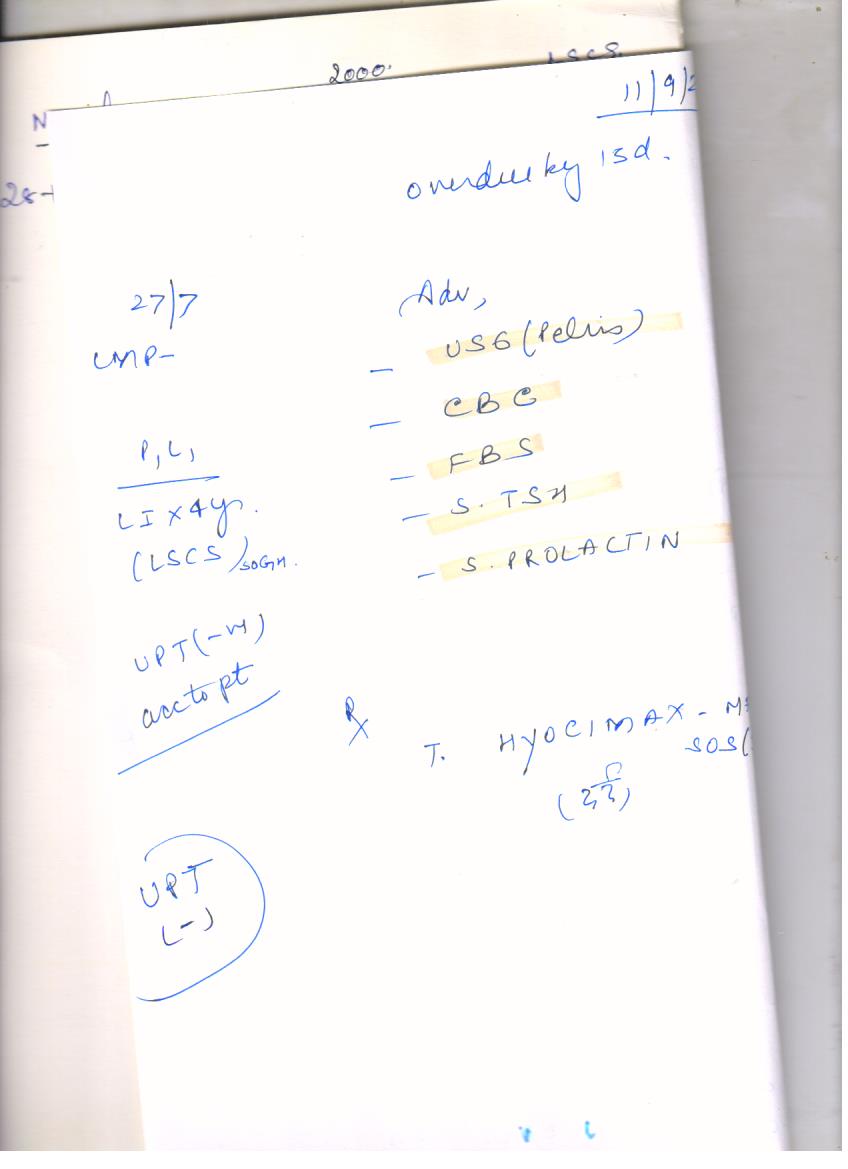 2000.
LSCS.
N
11/9/2
28-
overdue by 15d.
27/7
LMP-
Adv,
- USG (Pelvis)
- CBC
- FBS
- S. TSH
- S. PROLACTIN
P1L1
LI x 4yr.
(LSCS)
UPT (-ve)
acc to pt
Rx
T. HYOCIMAX - M
SOS (
UPT
(-)